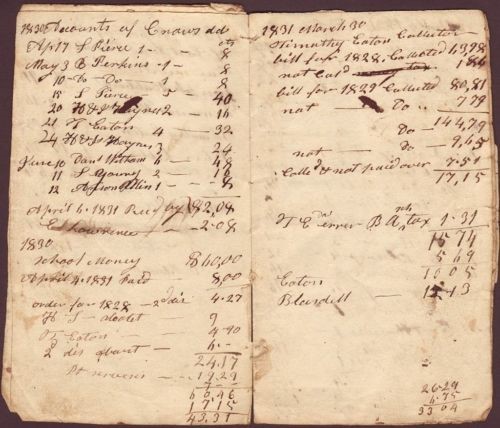 1830 Accounts of Crows dd
cts
Apl 7 S Pierce 1 - 8
May 3 B Perkins 1 - 8
10 Do Do 1 8
15 S Pierce 5 40
20 H & J Haynes 2 - 16
21 T Eaton 4 - 32
24 H & J Haynes 3 24
June 10 Danl Witham 6 - 48
11 S Young 2 - 16
12 1 - 8
April 4. 1831 Recd by $2,08
E Lawrence - 2.08
1830
School Money $60,00
April 4. 1831 Paid 8,00
order for 1828 - 2d dis 4.27
9
T Eaton 4-90
2 dis 6.-
24.17
19.29
60.46
17.15
43.31
1831 March 30
Timothy Eaton Collector
bill for 1828. Collected 43,98
not Cold 1,84
bill for 1829 Collected 80,81
not - Do 7 79
Do - 144,79
not - Do - 9,65
Colld & not paid over 7.51
17,15
T Eaton B tax 1.31
15 74
5 69
10 05
Eaton
Blaisdell 13
26-29
6.75
33 04